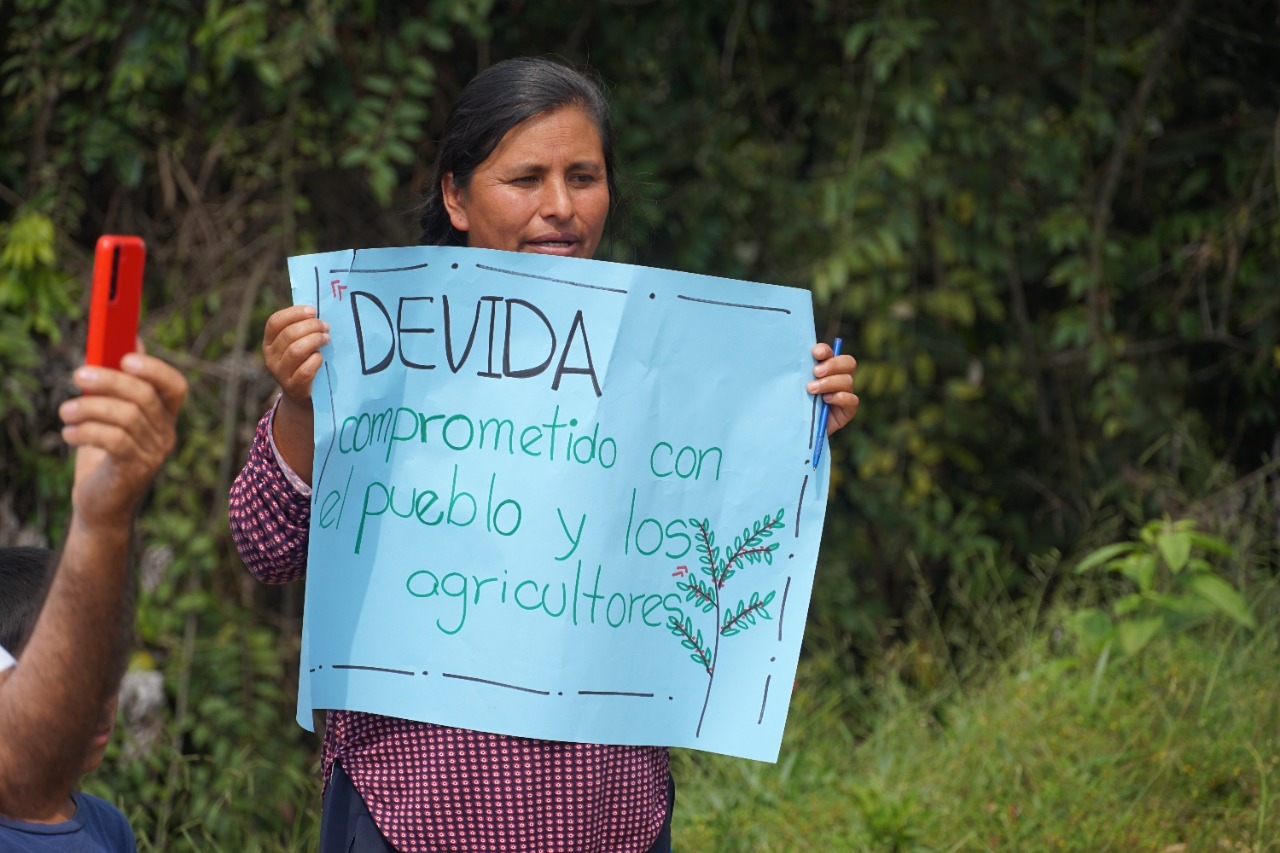 DEVIDA
comprometido con
el pueblo y los
agricultores